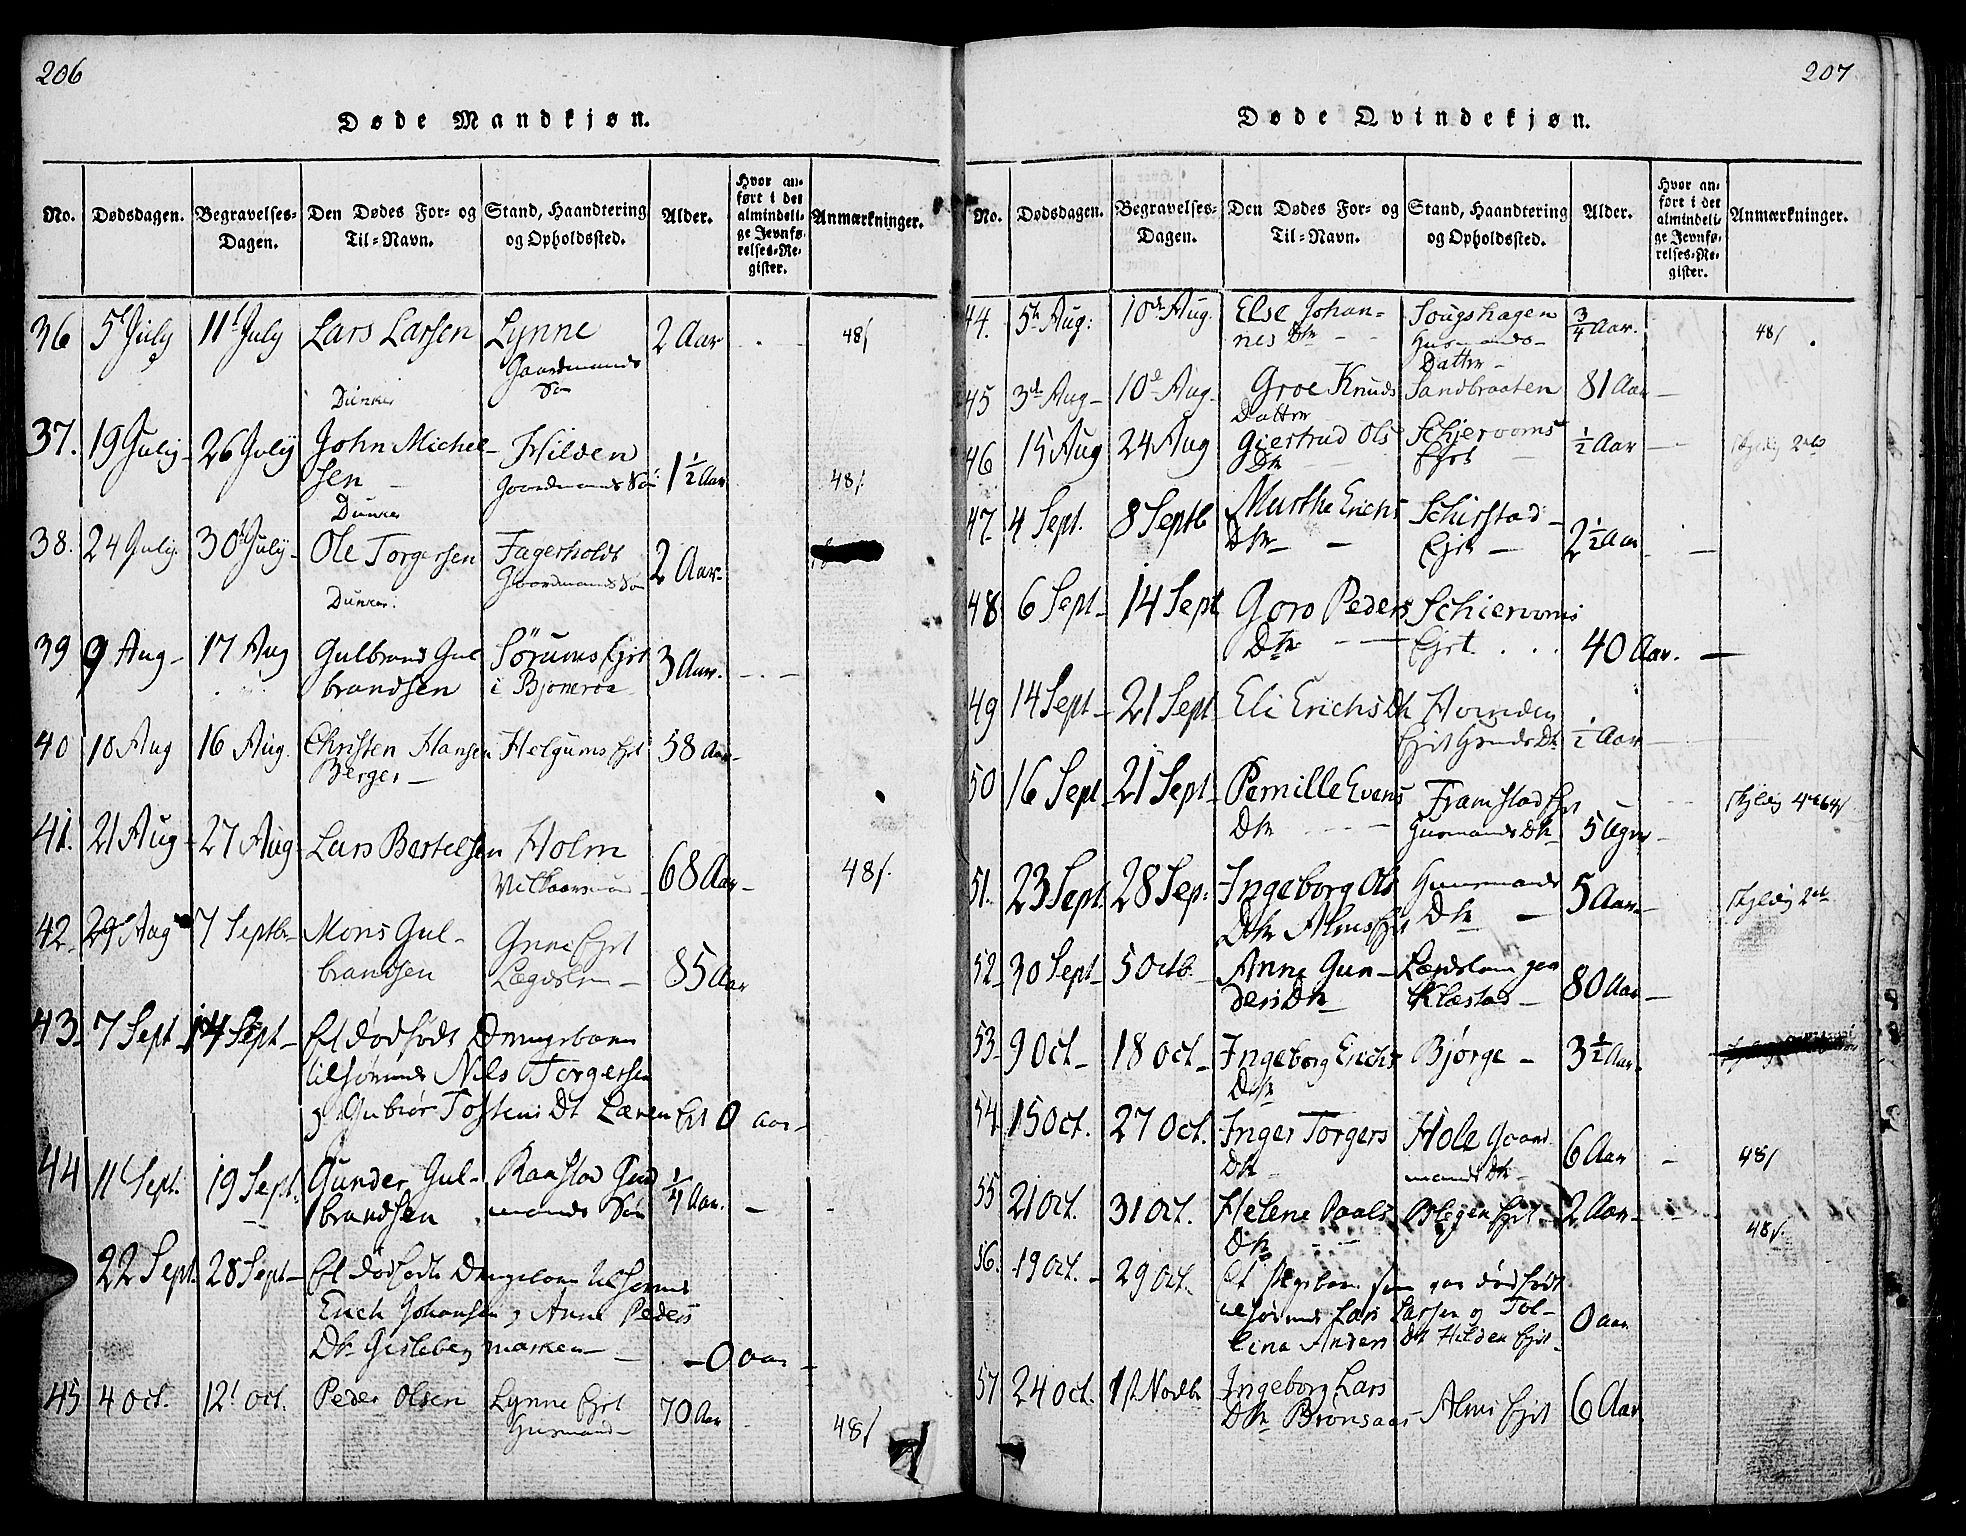 206
Døde Mandkjøn.
No. Dødsdagen. Begravelses-Dagen. Den Dødes For- og Til-Navn. Stand, Haandtering og Opholdssted. Alder. Hvor anført i det almindelige Jevnførelses-Register. Anmærkninger.
36 5t July 11t July Lars Larsen Lynne 2 Aar 48/
Gaardmands
Søn
37. 19 July 26 July John Michel- Hilden 1½ Aar 48/
sen Gaardmands Søn
38. 24 July 30t July Ole Torgersen Fagerholdt 2 Aar
Gaardmands Søn
39 9 Aug 17 Aug Gulbrand Gul Sörums Ejet 3 Aar.
brandsen i Bjoneroa
40 10 Aug 16 Aug. Christen Hansen Helgums Ejet 58 Aar
Berger
41. 21 Aug 27 Aug Lars Bertelsen Holm 68 Aar 48/.
42. 29 Aug 7 Septbr Mons Gul- Ejet 85 Aar
brandsen Lægdslem
43. 7 Sept 14 Sept Et dödfödt Drengebarn
Nils Torgersen
Tostens Dt Ejet 0 aar
44 11 Sept. 19 Sept. Gunder Gul- Raastad ¼ Aar.
brandsen mands Søn
22 Sept 28 Sept Et dødfødt Drengebarn
Erich Johansen og Anne Peders
Dtr 0 aar
45 4 Oct. 12t Oct. Peder Olsen Lynne Ejet 70 Aar 48/
Husmand
207
Døde Qvindekjøn.
No. Dødsdagen. Begravelses-Dagen. Den Dødes For- og Til-Navn. Stand, Haandtering og Opholdssted. Alder. Hvor anført i det almindelige Jevnførelses-Register. Anmærkninger.
44. 5t Aug: 10de Aug. Else Johan- Sougshagen ¾ Aar. 48/.
nis Dtr Husmands
Datter
45 3d Aug 10d Aug. Groe Knuds Sandbraaten 81 Aar
Datter
46 15 Aug 24 Aug Giertrud Ols ½ Aar
Dtr Ejet
47. 4 Sept. 8 Septb Marthe Erichs Schirstad 2½ Aar
Dtr Ejet
48 6 Sept 14 Sept Goro Peders 40 Aar.
Dtr Ejet
49 14 Sept 21 Sept Eli Erichs Dtr Hvinden ½ Aar
Ejet
50 16 Sept 21 Sept Pernille Evens Framstad Ejet 5 Uger
Dtr Husmands Dtr
51. 23 Sept. 28 Sep: Ingeborg Ols Huusmands 5 Aar
Dtr Alms Ejet Dtr
52. 30 Sept 5 Octb. Anne Gun- Lægdslem paa 80 Aar
ders Dtr Klæstad
53 9 Oct 18 Oct. Ingeborg Erichs Bjørge 3½ Aar
Dtr
54 15 Oct. 27 Oct. Inger Torgers Hole Gaard 6 Aar 48/
Dtr mands Dtr
55 21 Oct. 31 Oct. Helene Paals Ejet 2 Aar 48/.
Dtr
56. 19 Oct. 29 Oct. Et Pigebarn som var dødfødt
Lars Larsen og Tol-
lina Anders Dtr Hilden Ejet 0 aar
57 24 Oct. 1st Novbr Ingeborg Lars Alms Ejet 6 Aar
Dtr